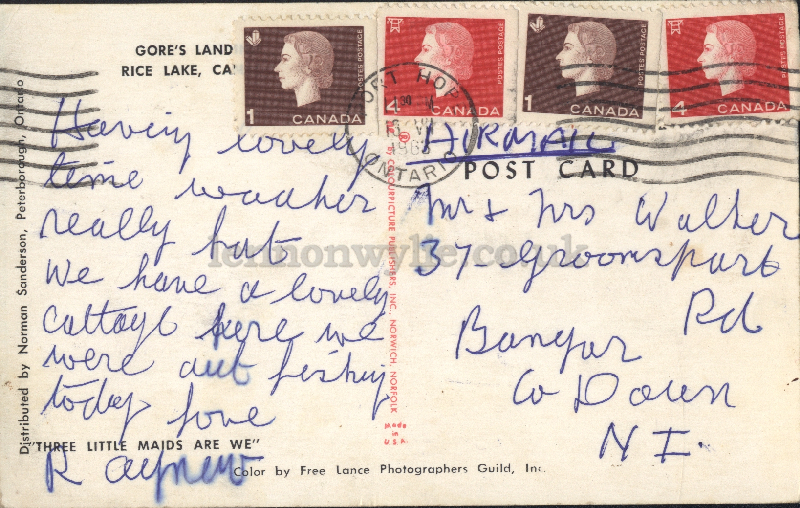 GORE'S LAND
RICE LAKE, CA
1 CANADA
POSTES POSTAGE
4 CANADA
POSTES POSTAGE
1 CANADA
POSTES POSTAGE
4 CANADA
POSTES POSTAGE
PORT HOPE
ONTARIO
AIRMAIL
POST CARD
Having lovely
time weather
really hot
We have a lovely
cottage here we
were out fishing
today love
R Agnew
Mr & Mrs Walker
37 Groomsport
Rd
Bangor
Co Down
N I.
Distributed by Norman Sanderson, Peterborough, Ontario
COLOURPICTURE PUBLISHERS, INC., NORWICH, NORFOLK
Made
in
U.S.A.
"THREE LITTLE MAIDS ARE WE"
Color by Free Lance Photographers Guild, Inc.
lennonwylie.co.uk